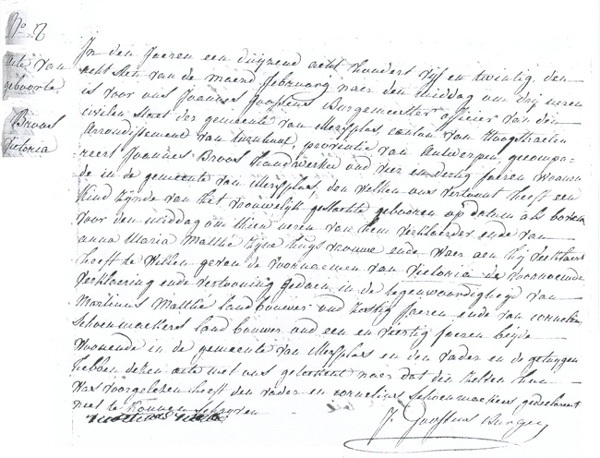 No 8
acte van
geboorte
Broos
Victoria
In den Jaeren een duijzend acht hundert vijf en twintig, den
acht sten van de maend february naer den middag om drij ueren
is voor ons Joannes Goossens Borgemeester officier van den
civilen staet der gemeente van Merxplas, canton van Hoogstraeten
Arrondissement van turnhout, provintie van Antwerpen, gecompa-
reert Joannes Broos Handwerker oud vier en dertig Jaeren woonen
de in de gemeente van Merxplas, den welken ons vertoont heeft een
kind zijnde van het vrouwelijk geslachte geboren op datum als boven
voor den middag om thien ueren van hem verklaerder ende van
anna Maria Matthé zijne huys vrouwe ende waer aen hij verklaert
heeft te willen geven de voornaemen van Victoria de voornoemde
verklaering ende vertooning gedaen in de tegenwoordigheyd van
Martinus Matthé landbouwer oud sestig Jaeren ende van cornelius
Schoenmaekers landbouwer oud een en veertig Jaeren beijde
woonende in de gemeente van Merxplas en den vader en de getuygen
hebben dezen acte met ons geteekent naer dat die zelden hun
was voorgelezen heeft den vader en cornelius Schoenmaekers gedeclareert
niet te konnen schryven
J. Goossens Burgem